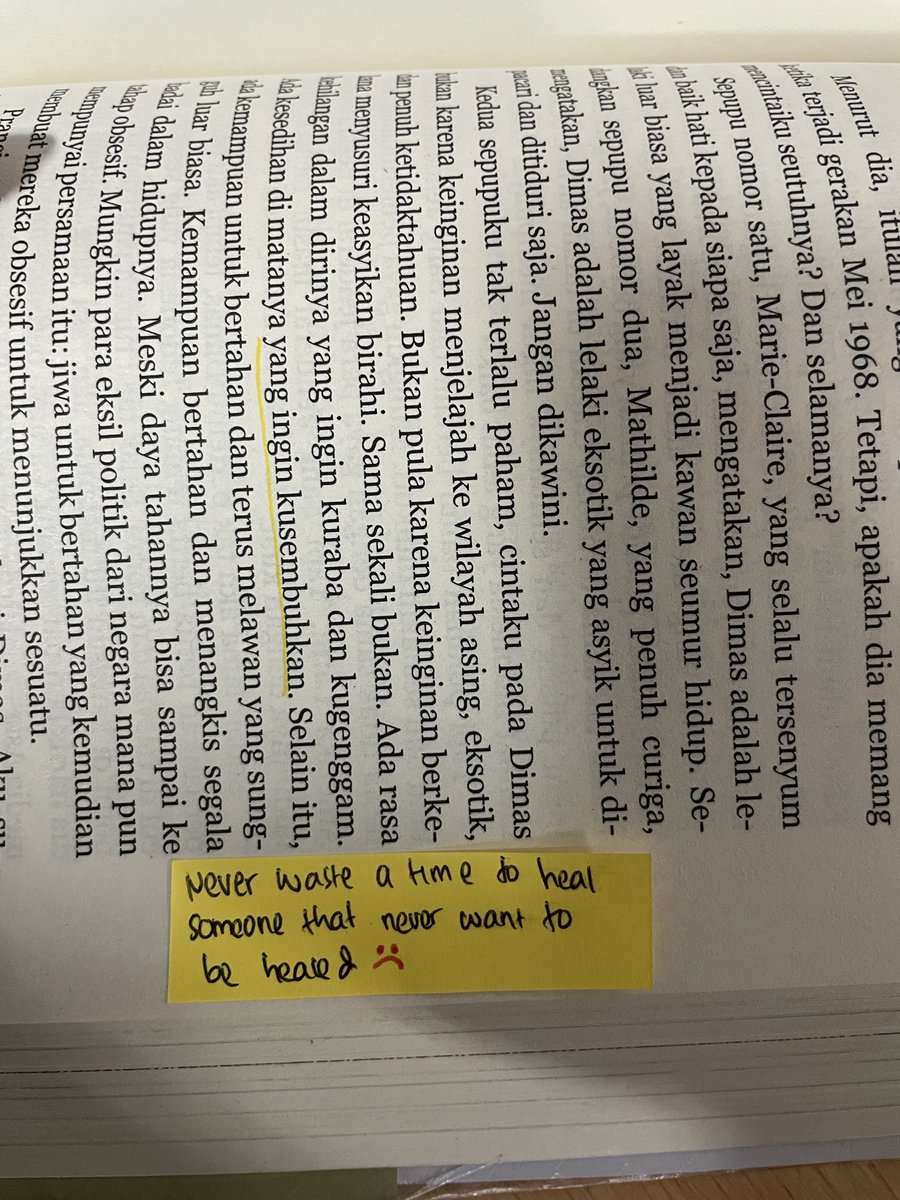 Menurut dia, itulah yang
ketika terjadi gerakan Mei 1968. Tetapi, apakah dia memang
mencintaiku seutuhnya? Dan selamanya?
Sepupu nomor satu, Marie-Claire, yang selalu tersenyum
dan baik hati kepada siapa saja, mengatakan, Dimas adalah le-
laki luar biasa yang layak menjadi kawan seumur hidup. Se-
dangkan sepupu nomor dua, Mathilde, yang penuh curiga,
mengatakan, Dimas adalah lelaki eksotik yang asyik untuk di-
pacari dan ditiduri saja. Jangan dikawini.
Kedua sepupuku tak terlalu paham, cintaku pada Dimas
bukan karena keinginan menjelajah ke wilayah asing, eksotik,
dan penuh ketidaktahuan. Bukan pula karena keinginan berke-
lana menyusuri keasyikan birahi. Sama sekali bukan. Ada rasa
kehilangan dalam dirinya yang ingin kuraba dan kugenggam.
Ada kesedihan di matanya yang ingin kusembuhkan. Selain itu,
ada kemampuan untuk bertahan dan terus melawan yang sung-
guh luar biasa. Kemampuan bertahan dan menangkis segala
badai dalam hidupnya. Meski daya tahannya bisa sampai ke
tahap obsesif. Mungkin para eksil politik dari negara mana pun
mempunyai persamaan itu: jiwa untuk bertahan yang kemudian
membuat mereka obsesif untuk menunjukkan sesuatu.
Never waste a time to heal
someone that never want to
be healed :(